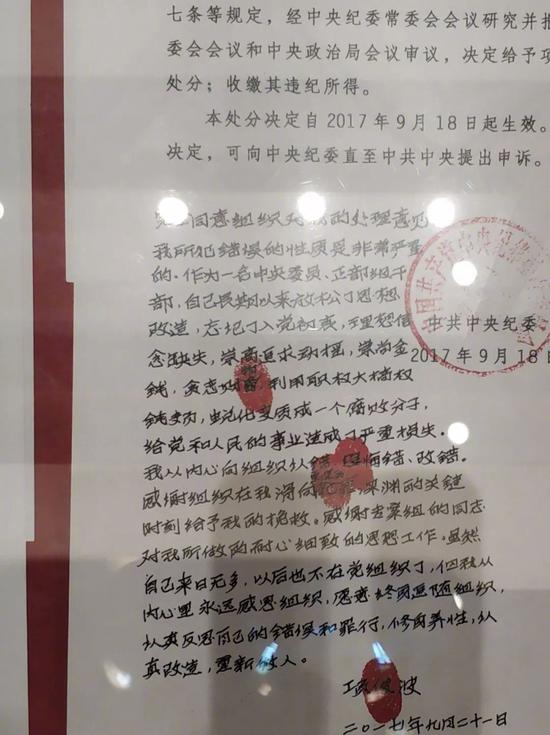 七条等规定，经中央纪委常委会会议研究并报
委会会议和中央政治局会议审议，决定给予项
处分；收缴其违纪所得。
本处分决定自2017年9月18日起生效。
决定，可向中央纪委直至中共中央提出申诉。
同意组织对我的处理意见
我所犯错误的性质是非常严重
的。作为一名中央委员、正部级干
部，自己长期以来放松了思想
改造，忘记了入党初衷，理想信
念缺失，崇高追求动摇，崇尚金
钱，贪恋财富，利用职权大搞权
钱交易，蜕化变质成一个腐败分子，
给党和人民的事业造成了严重损失。
我从内心向组织认错、悔错、改错。
感谢组织在我滑向犯罪深渊的关键
时刻给予我的挽救。感谢专案组的同志
对我所做的耐心细致的思想工作。虽然
自己来日无多，以后也不在党组织了，但我从
内心里永远感恩组织，愿意终身追随组织，
认真反思自己的错误和罪行，修身养性，认
真改造，重新做人。
中共中央纪委
2017年9月18日
项俊波
二〇一七年九月二十一日